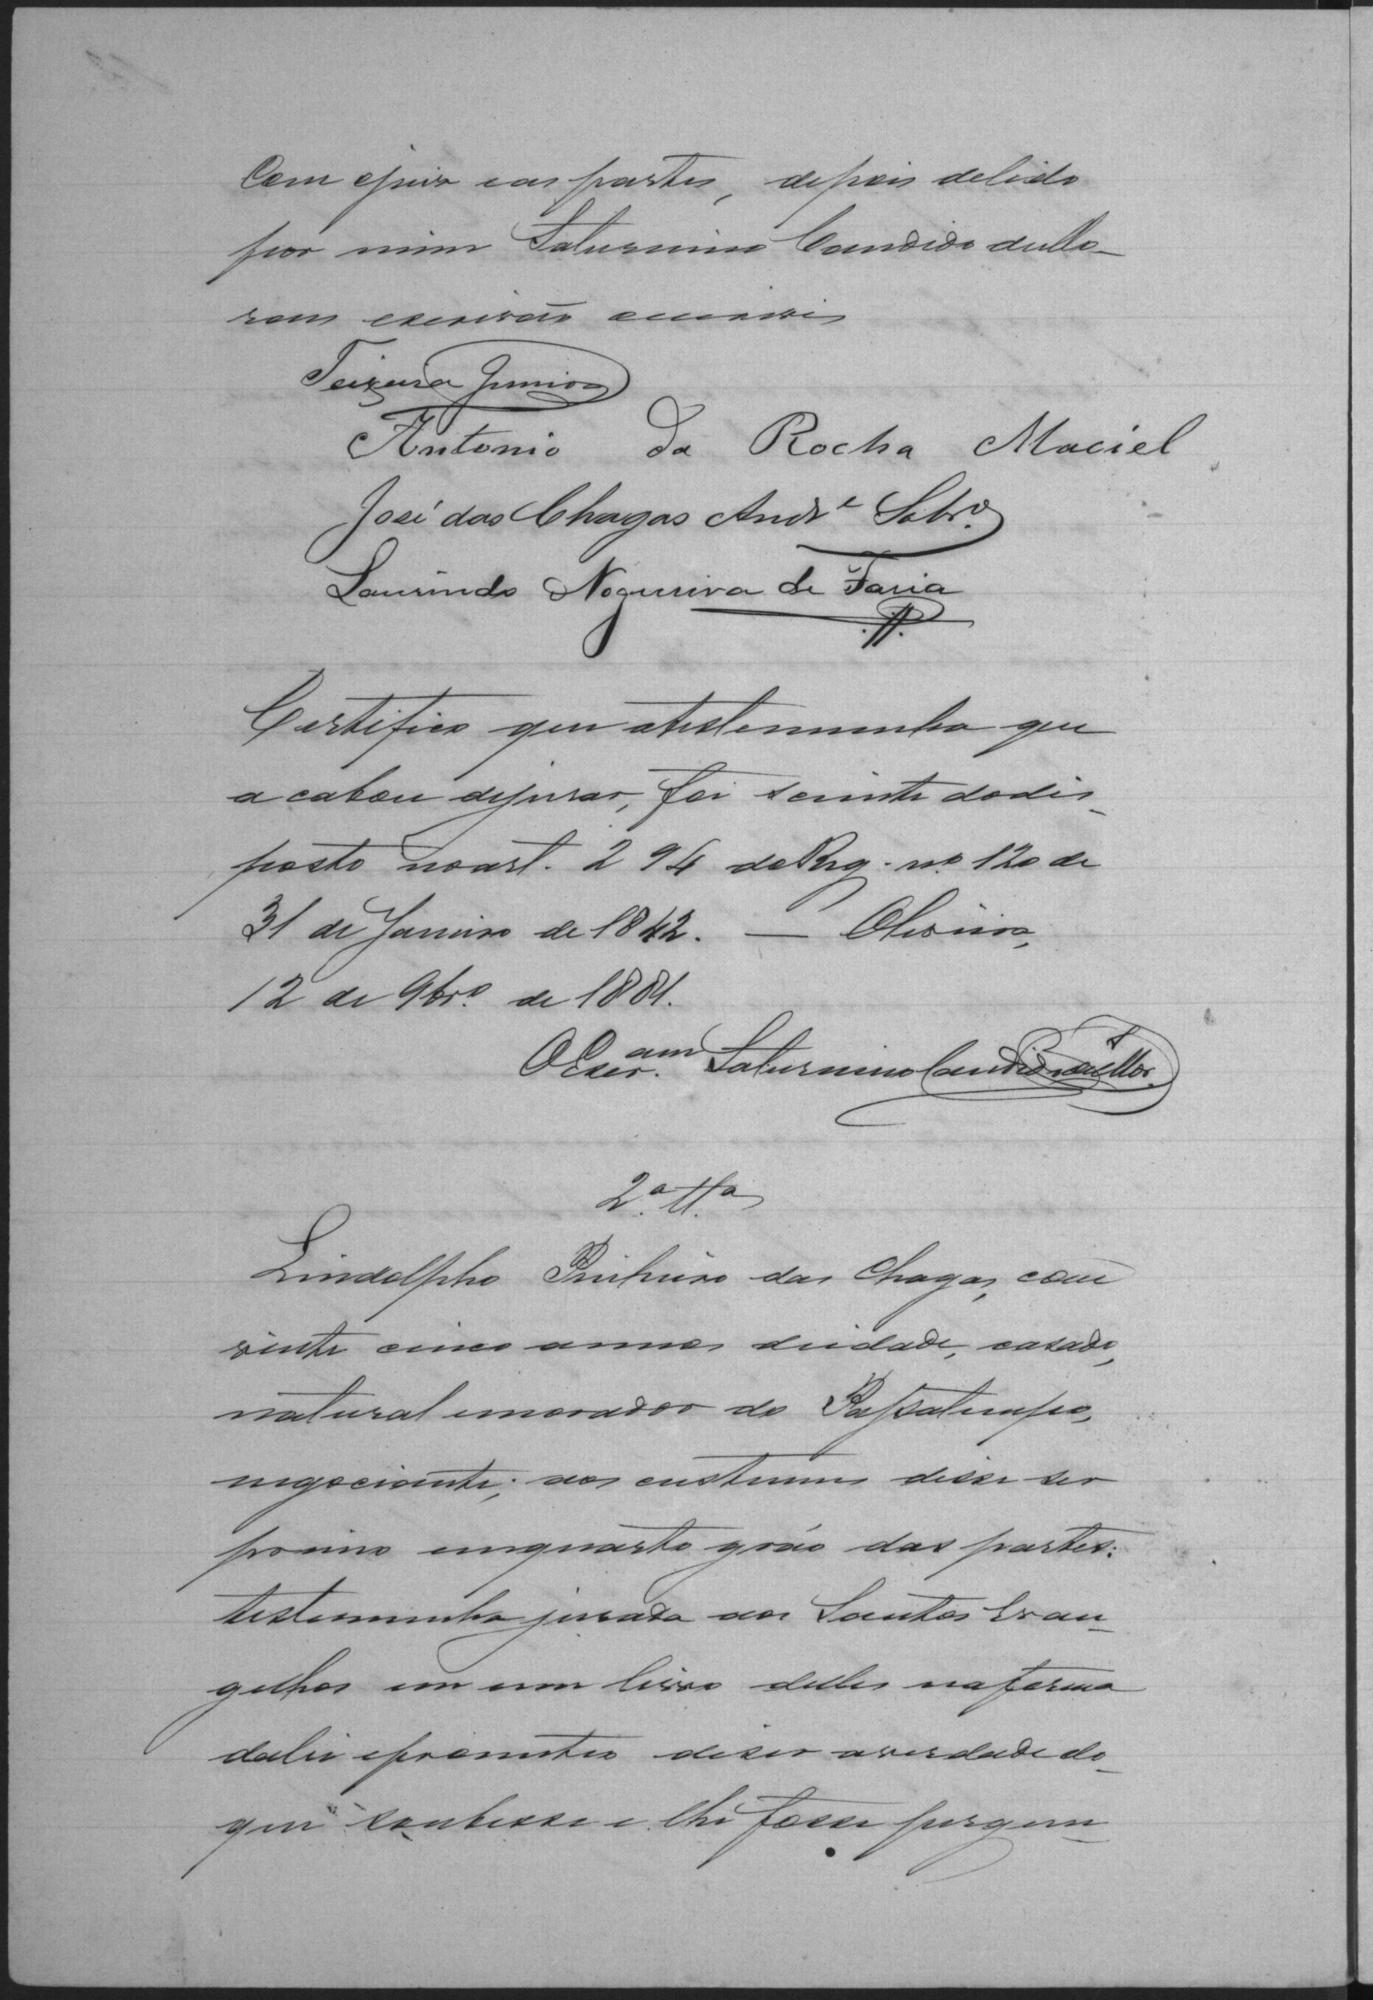 Com ojuiz eas partes, depois delido
por mim Saturnino Candido deMo-
raes escrivão escrevi
Teixeira Junior
Antonio da Rocha Maciel
José das Chagas Andr.e Sobr.o
Laurindo Nogueira de Faria
Certifico que atestemunha que
acabou dejurar, foi sciente dodis-
posto noart. 294 doReg. nº 120 de
31 de Janeiro de 1842. — Oliveira,
12 de 9br.o de 1881.
OEscr.am Saturnino Candido deMor.
2.a Tt.a
Lindolpho Pinheiro das Chagas, com
vinte cinco annos deidade, casado,
natural emorador do Passatempo,
negociante; aos custumes disse ser
primo emquarto gráo das partes:
testemunha jurada aos Santos Evan-
gelhos em um livro delles naforma
dalei eprometteo dizer averdade do-
que soubesse e lhe fosse pergun-